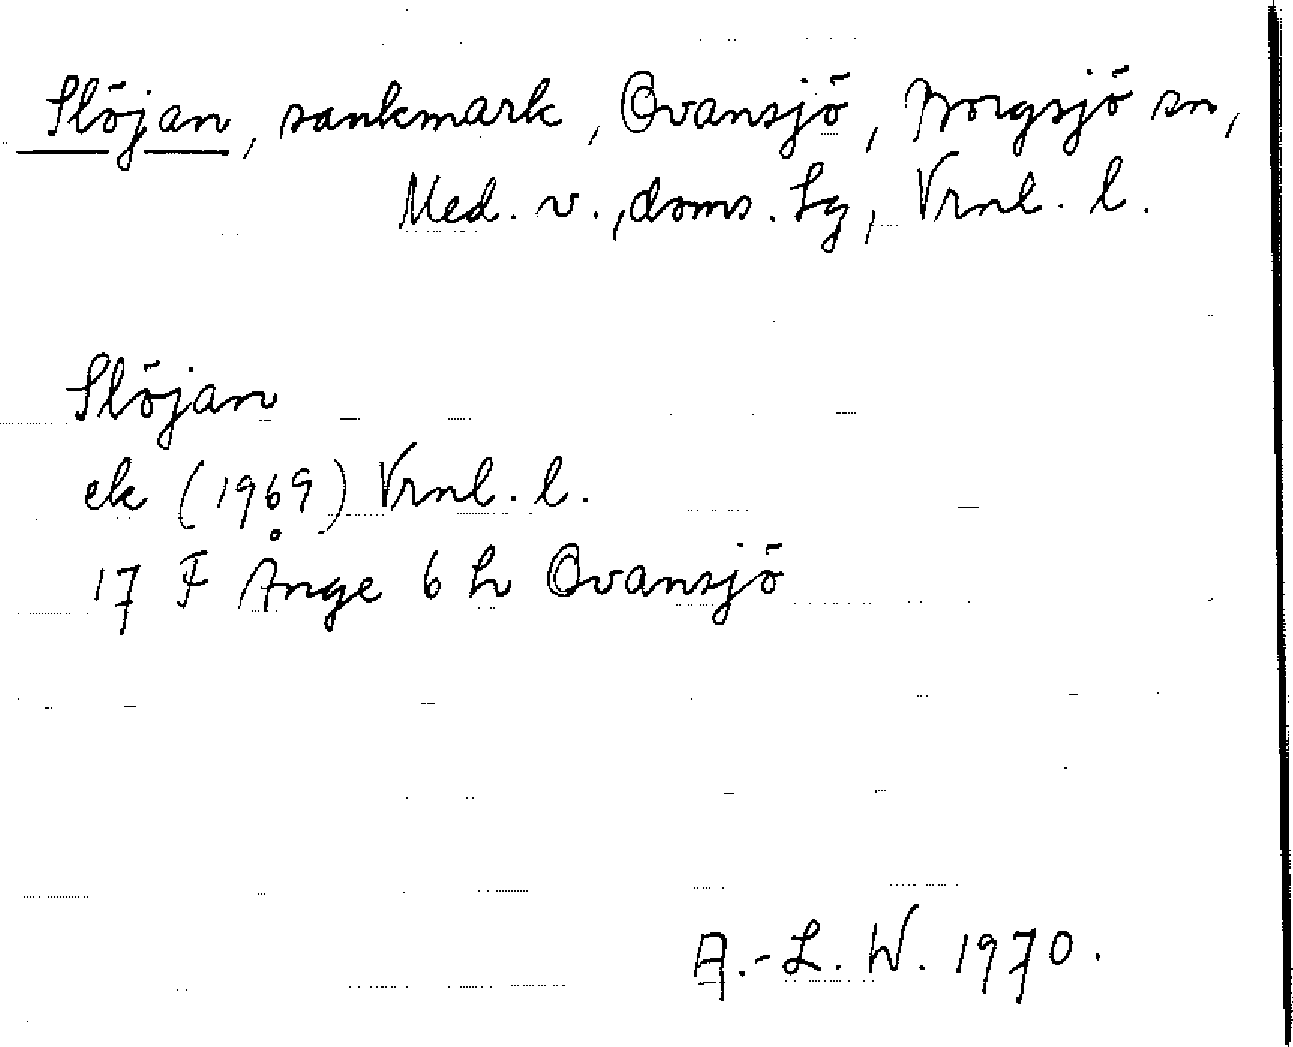 Slöjan, sankmark, Ovansjö, Borgsjö sn,
Med. v., doms. lg, Vrnl. l.
Slöjan
ek (1969) Vrnl. l.
17 F Ånge 6 h Ovansjö
A.-L. W. 1970.